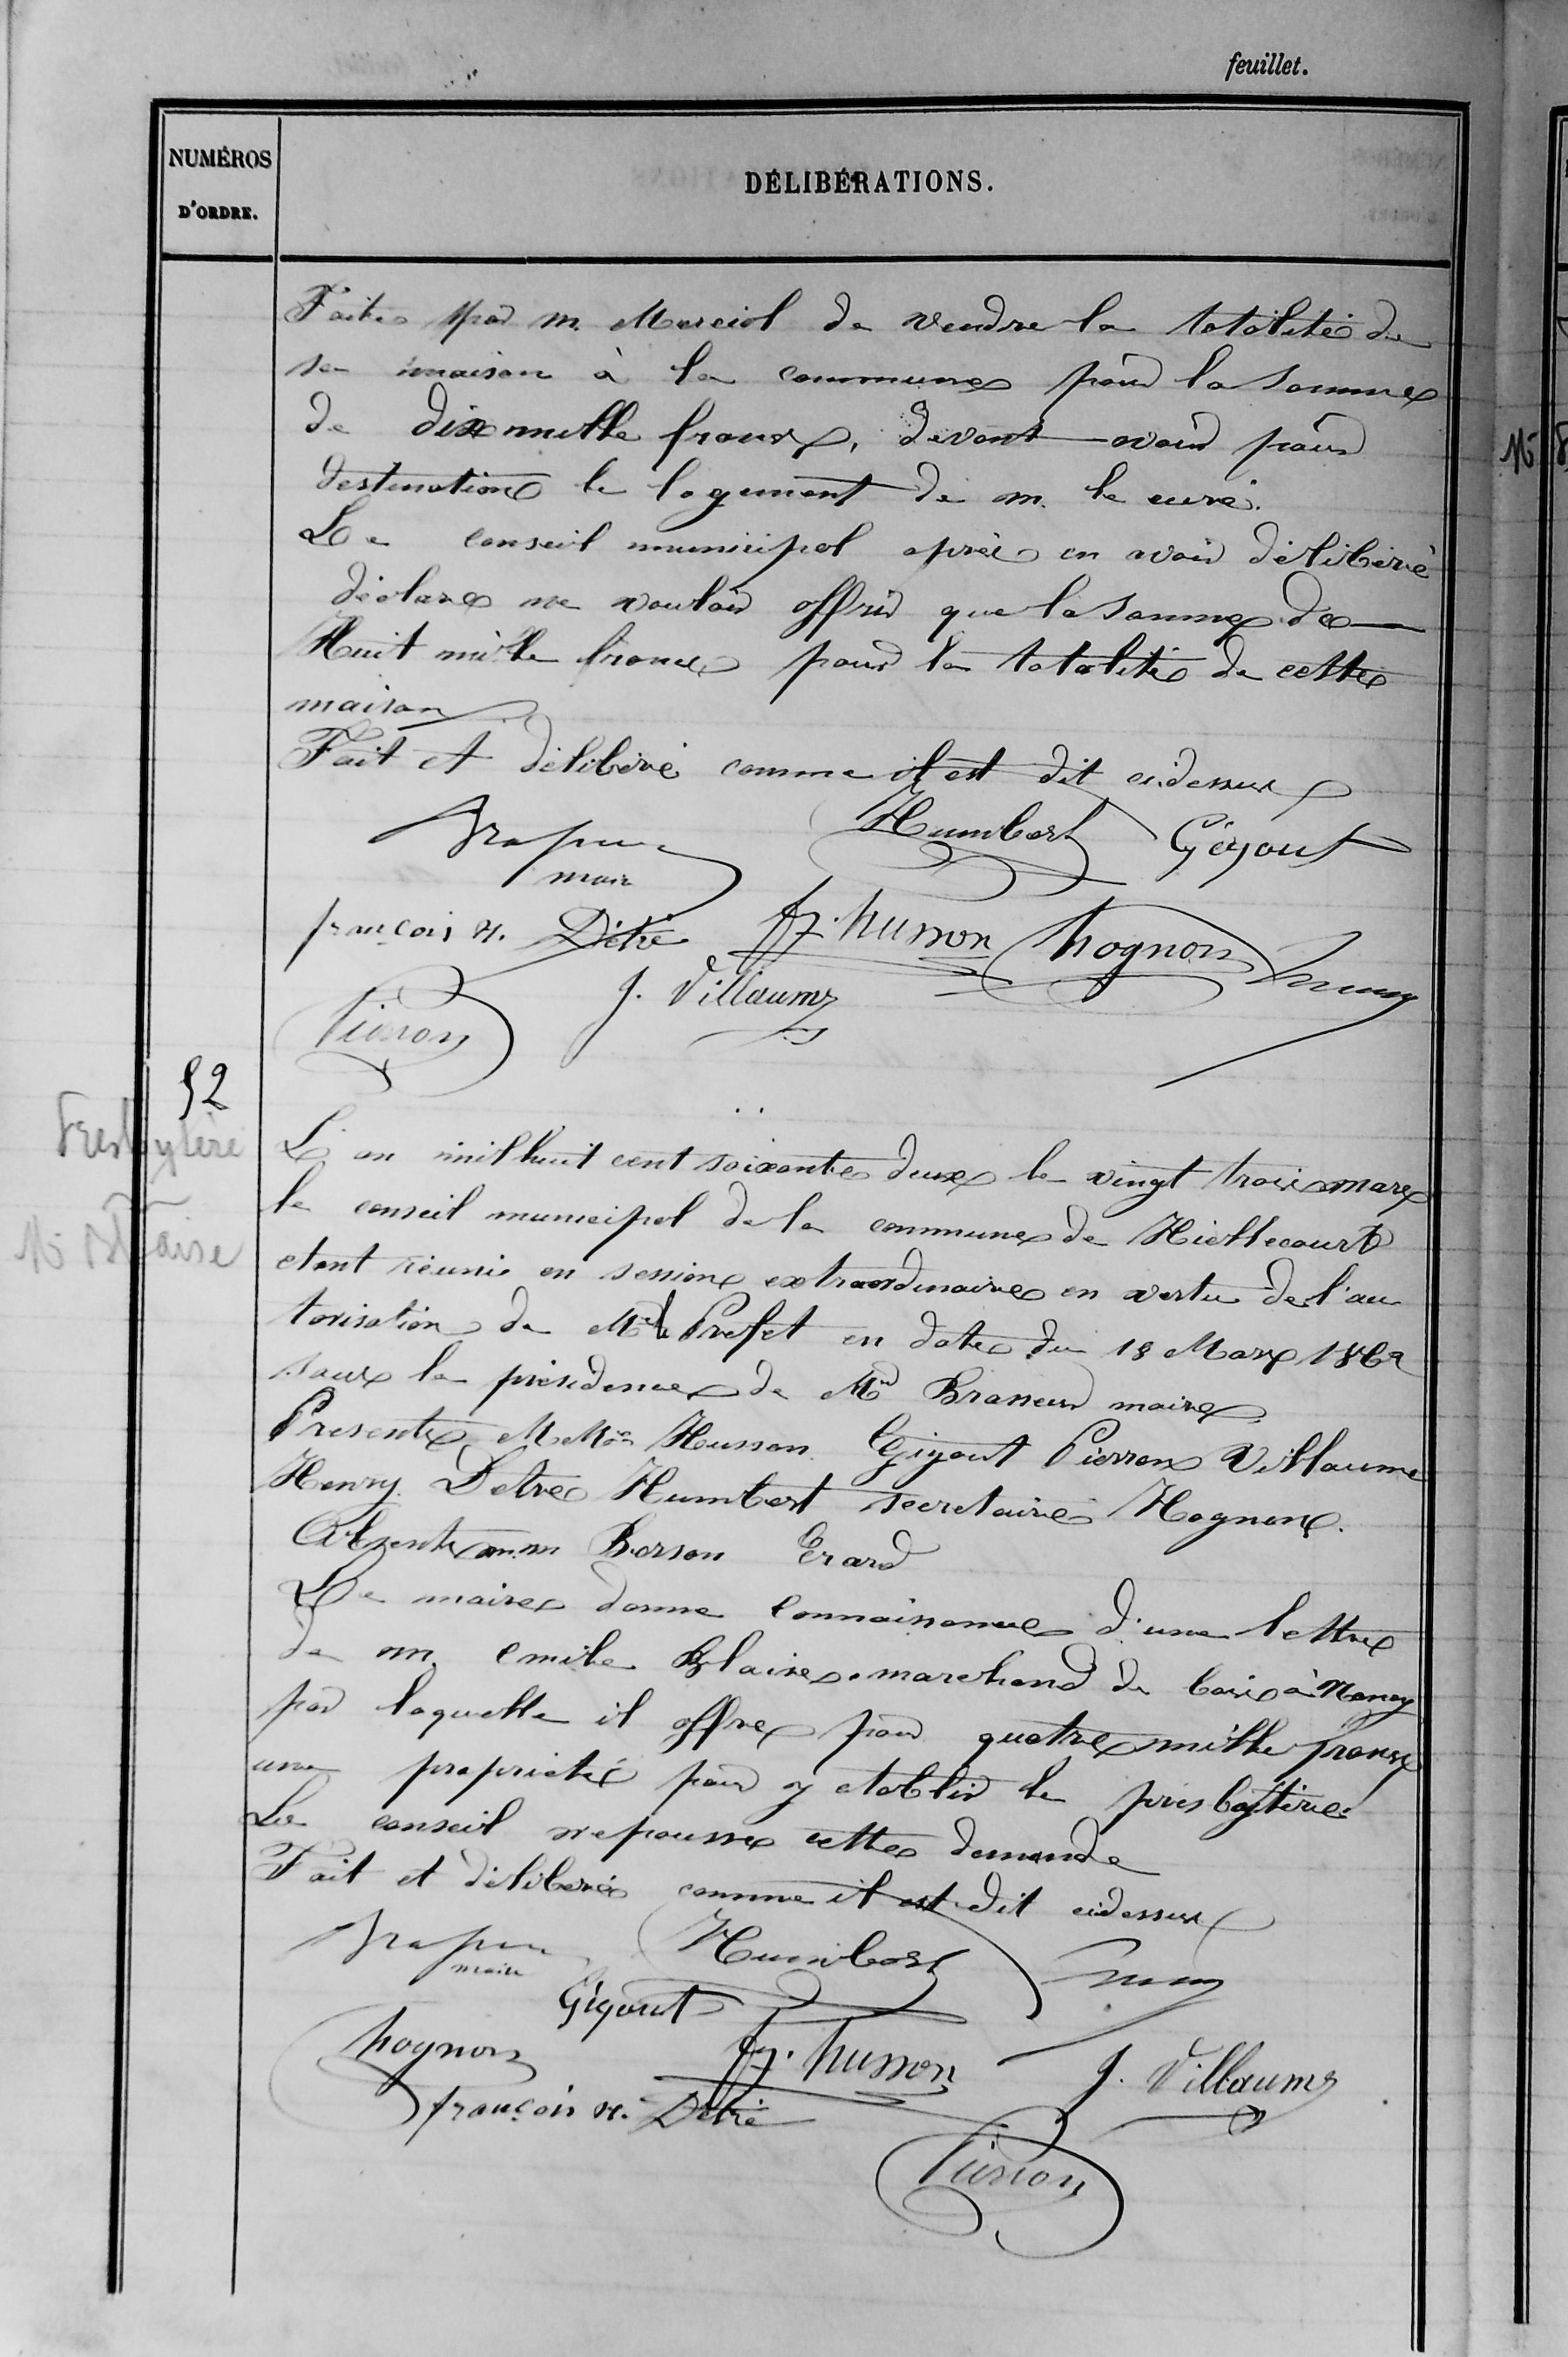 feuillet.
NUMÉROS
D'ORDRE.
DÉLIBÉRATIONS.
Faite par m. Marciol de vendre la totalité de
sa maison à la commune pour la somme
de dix mille francs, devant avoir pour
destination le logement de m. le curé.
Le conseil municipal après en avoir délibéré
déclare ne vouloir offrir que la somme de
Huit mille francs pour la totalité de cette
maison
Fait et délibéré comme il est dit cidessus
maire
Humbert Gégout
françois n. Détré fz. husson hognon
Pierron J. Villaume
52
Presbytère
Mr Blaise
L'an mil huit cent soixante deux le vingt trois mars
le conseil municipal de la commune de
etant réunie en session extraordinaire en vertu de l'au
torisation de Mr le Prefet en date du 18 Mars 1862
sous la présidence de Mr maire
Presents M Mrs Husson Gigout Pierron Villaume
Henry Detré Humbert secretaire Hognon.
Absents m.m Berson Erard
Le maire donne connaissance d'une lettre
de m. emile Blaise marchand de bois à Nancy
par laquelle il offre pour quatre mille francs
une propriété pour y etablir le presbytère
Le conseil repousse cette demande
Fait et délibéré comme il est dit cidessus
maire
Humbert
Gigout
hognon fz. husson J. Villaume
françois n. Détré
Pierron